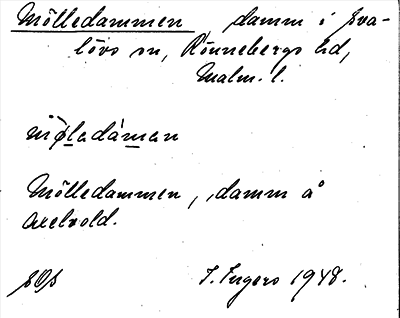 Mölledammen damm i Sva-
lövs sn, Rönnebergs hd,
Malm. l.
møladáman
Mölledammen, damm å
Axelvold.
SOS I. Ingers 1948.